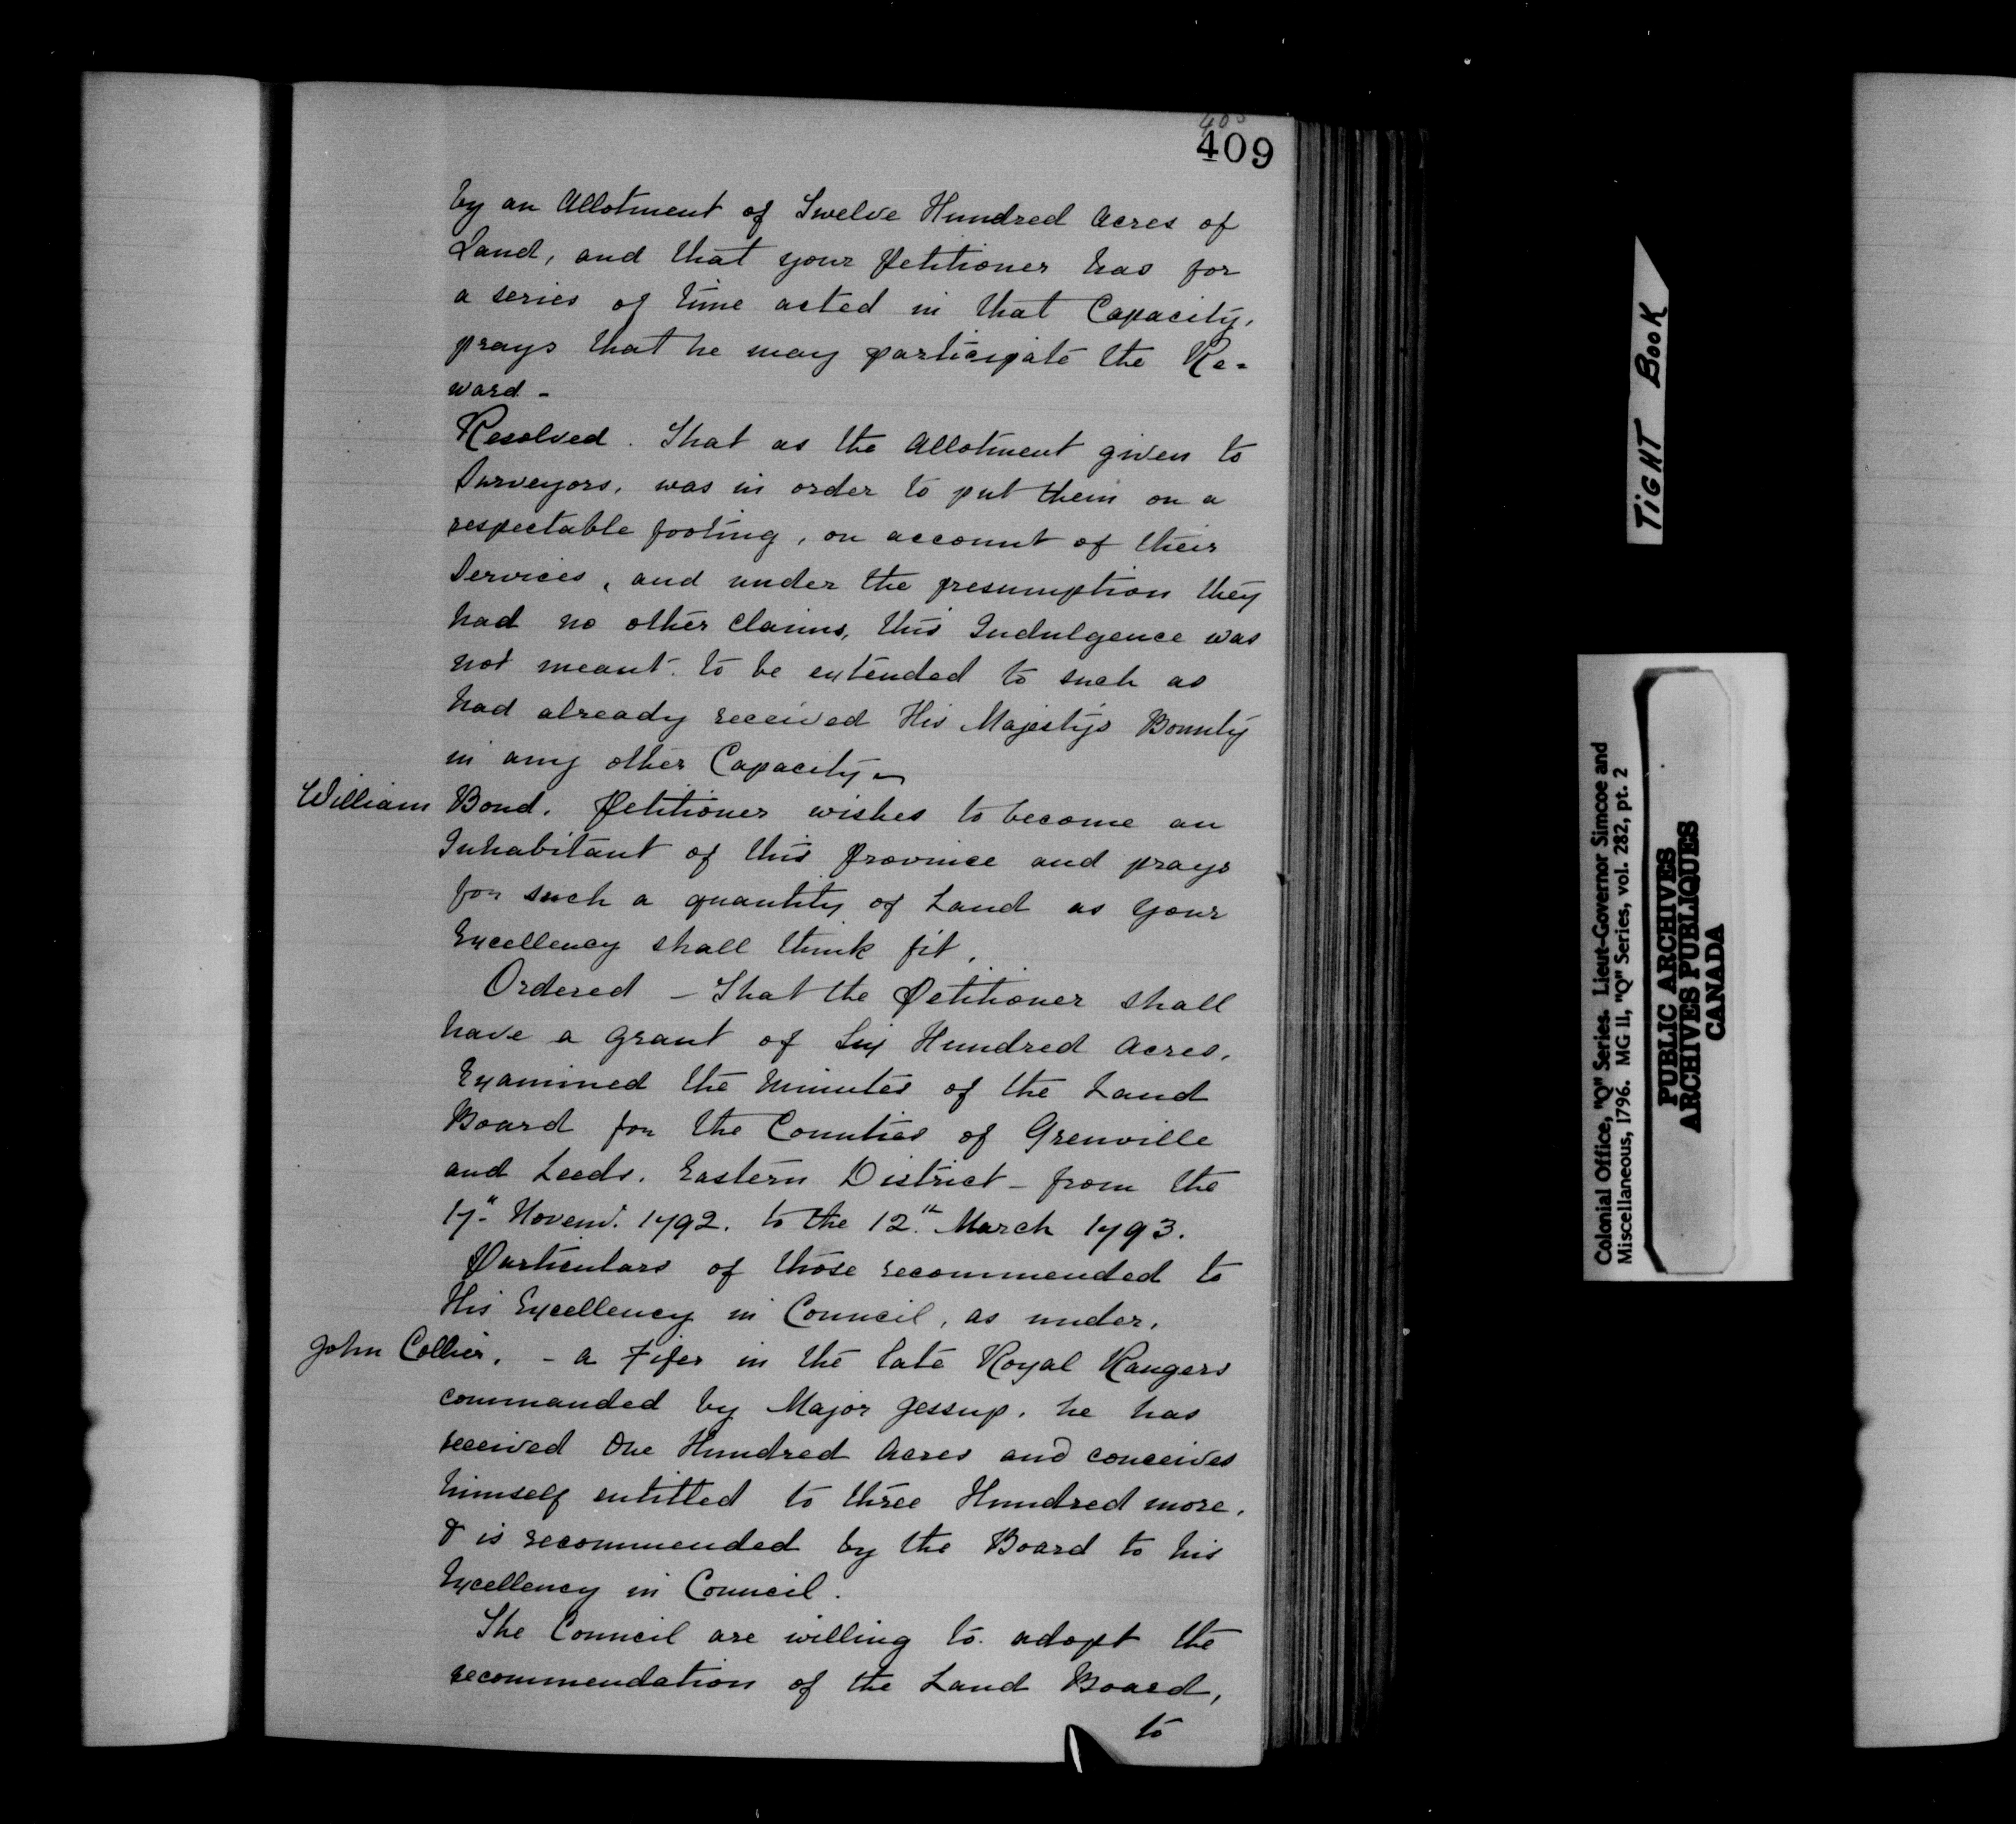 409
by an Allotment of Twelve Hundred Acres of
Land, and that your Petitioner has for
a series of time acted in that Capacity,
prays that he may participate the Re-
ward -
Resolved. That as the Allotment given to
Surveyors, was in order to put them on a
respectable footing, on account of their
Services, and under the presumption they
had no other claims, this Indulgence was
not meant to be extended to such as
had already received His Majesty's Bounty
in any other Capacity -
William Bond. Petitioner wishes to become an
Inhabitant of this Province and prays
for such a quantity of Land as your
Excellency shall think fit.
Ordered - That the Petitioner shall
have a grant of Six Hundred Acres.
Examined the Minutes of the Land
Board for the Counties of Grenville
and Leeds. Eastern District - from the
17th Novemr. 1792. to the 12th March 1793.
Particulars of those recommended to
His Excellency in Council, as under.
John Collier. - a Fifer in the late Royal Rangers
commanded by Major Jessup. he has
received One Hundred Acres and conceives
himself entitled to three Hundred more.
& is recommended by the Board to his
Excellency in Council.
The Council are willing to adopt the
recommendation of the Land Board,
to
TIGHT BOOK
Colonial Office, "Q" Series. Lieut-Governor Simcoe and
Miscellaneous, 1796. MG 11, "Q" Series, vol. 282, pt. 2
PUBLIC ARCHIVES
ARCHIVES PUBLIQUES
CANADA